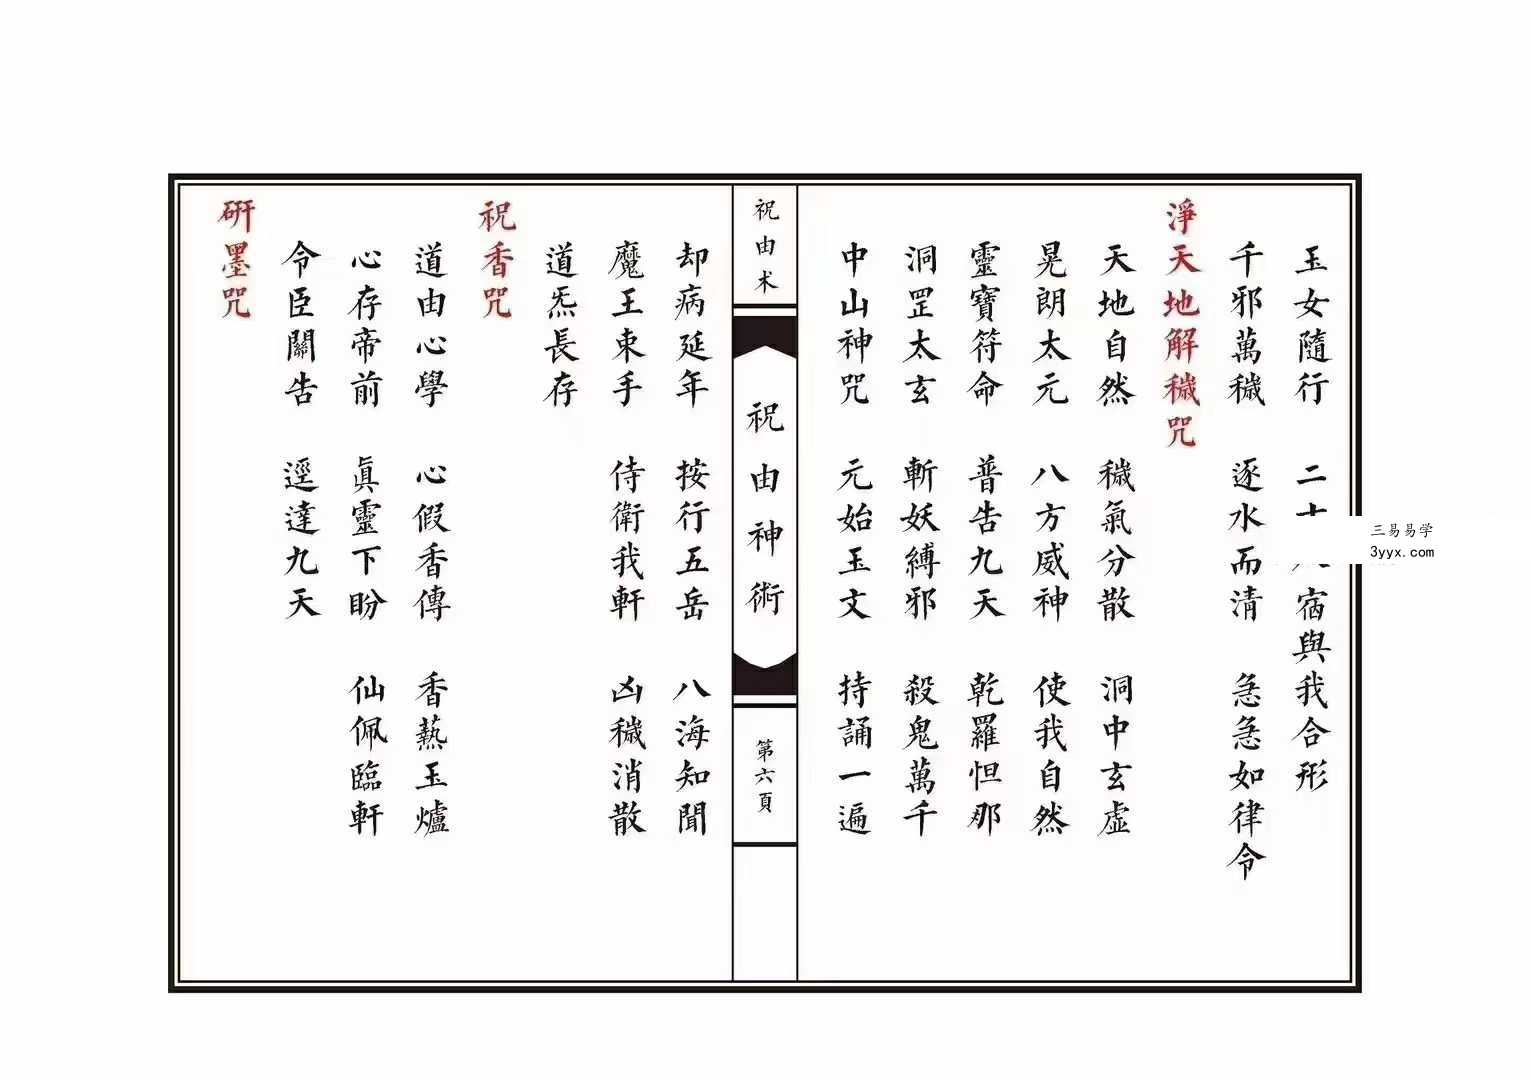 玉女隨行 二十八宿與我合形
千邪萬穢 逐水而清 急急如律令
淨天地解穢咒
天地自然 穢氣分散 洞中玄虛
晃朗太元 八方威神 使我自然
靈寶符命 普告九天 乾羅怛那
洞罡太玄 斬妖縛邪 殺鬼萬千
中山神咒 元始玉文 持誦一遍
祝由术
祝由神術
第六頁
却病延年 按行五岳 八海知聞
魔王束手 侍衛我軒 凶穢消散
道炁長存
祝香咒
道由心學 心假香傳 香爇玉爐
心存帝前 眞靈下盼 仙佩臨軒
令臣關告 逕達九天
研墨咒
三易易学
3yyx.com